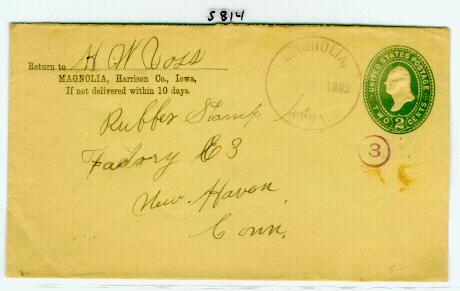 5814
Return to H W Voss
MAGNOLIA, Harrison Co., Iowa,
If not delivered within 10 days.
MAGNOLIA,
1892
IOWA
UNITED STATES POSTAGE
TWO 2 CENTS
3
Rubber Stamp
Factory E3
New Haven
Conn.